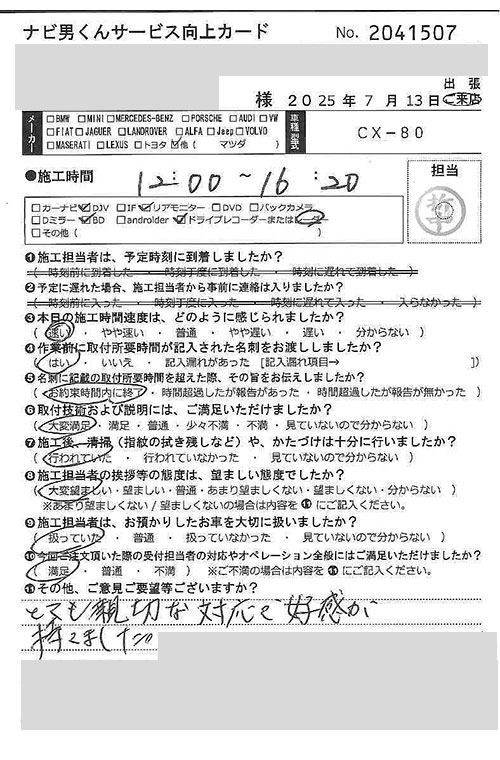 ナビ男くんサービス向上カード No. 2041507
様 2025年7月13日 出張 ・ご来店
メーカー □BMW □MINI □MERCEDES-BENZ □PORSCHE □AUDI □VW
□FIAT □JAGUER □LANDROVER □ALFA □Jeep □VOLVO
□MASERATI □LEXUS □トヨタ ☑他( マツダ )
車種・型式 CX-80
●施工時間 12:00~16:20
担当
□カーナビ ☑DJV □IF ☑リアモニター □DVD □バックカメラ
□Dミラー ☑BD □androider ☑ドライブレコーダーまたはレーダー
□その他( )
❶施工担当者は、予定時刻に到着しましたか?
( 時刻前に到着した ・ 時刻丁度に到着した ・ 時刻に遅れて到着した )
❷予定に遅れた場合、施工担当者から事前に連絡は入りましたか?
( 時刻前に入った ・ 時刻丁度に入った ・ 時刻に遅れて入った ・ 入らなかった )
❸本日の施工時間速度は、どのように感じられましたか?
( 速い ・ やや速い ・ 普通 ・ やや遅い ・ 遅い ・ 分からない )
❹作業前に取付所要時間が記入された名刺をお渡ししましたか?
( はい ・ いいえ ・ 記入漏れがあった [記入漏れ項目→ ]
❺名刺に記載の取付所要時間を超えた際、その旨をお伝えしましたか?
( お約束時間内に終了 ・ 時間超過したが報告があった ・ 時間超過したが報告が無かった )
❻取付技術および説明には、ご満足いただけましたか?
( 大変満足 ・ 満足 ・ 普通 ・ 少々不満 ・ 不満 ・ 見ていないので分からない )
❼施工後、清掃(指紋の拭き残しなど)や、かたづけは十分に行いましたか?
( 行われていた ・ 行われていなかった ・ 見ていないので分からない )
❽施工担当者の挨拶等の態度は、望ましい態度でしたか?
( 大変望ましい・望ましい・普通・あまり望ましくない・望ましくない・分からない )
※あまり望ましくない/望ましくないの場合は内容を⓫にご記入ください。
❾施工担当者は、お預かりしたお車を大切に扱いましたか?
( 扱っていた ・ 普通 ・ 扱っていなかった ・ 見ていないので分からない )
❿今回ご注文頂いた際の受付担当者の対応やオペレーション全般にはご満足いただけましたか?
( 満足 ・ 普通 ・ 不満 ) ※ご不満の場合は内容を⓫にご記入ください。
⓫その他、ご意見ご要望等ございますか?
とても親切な対応で好感が
持てました。